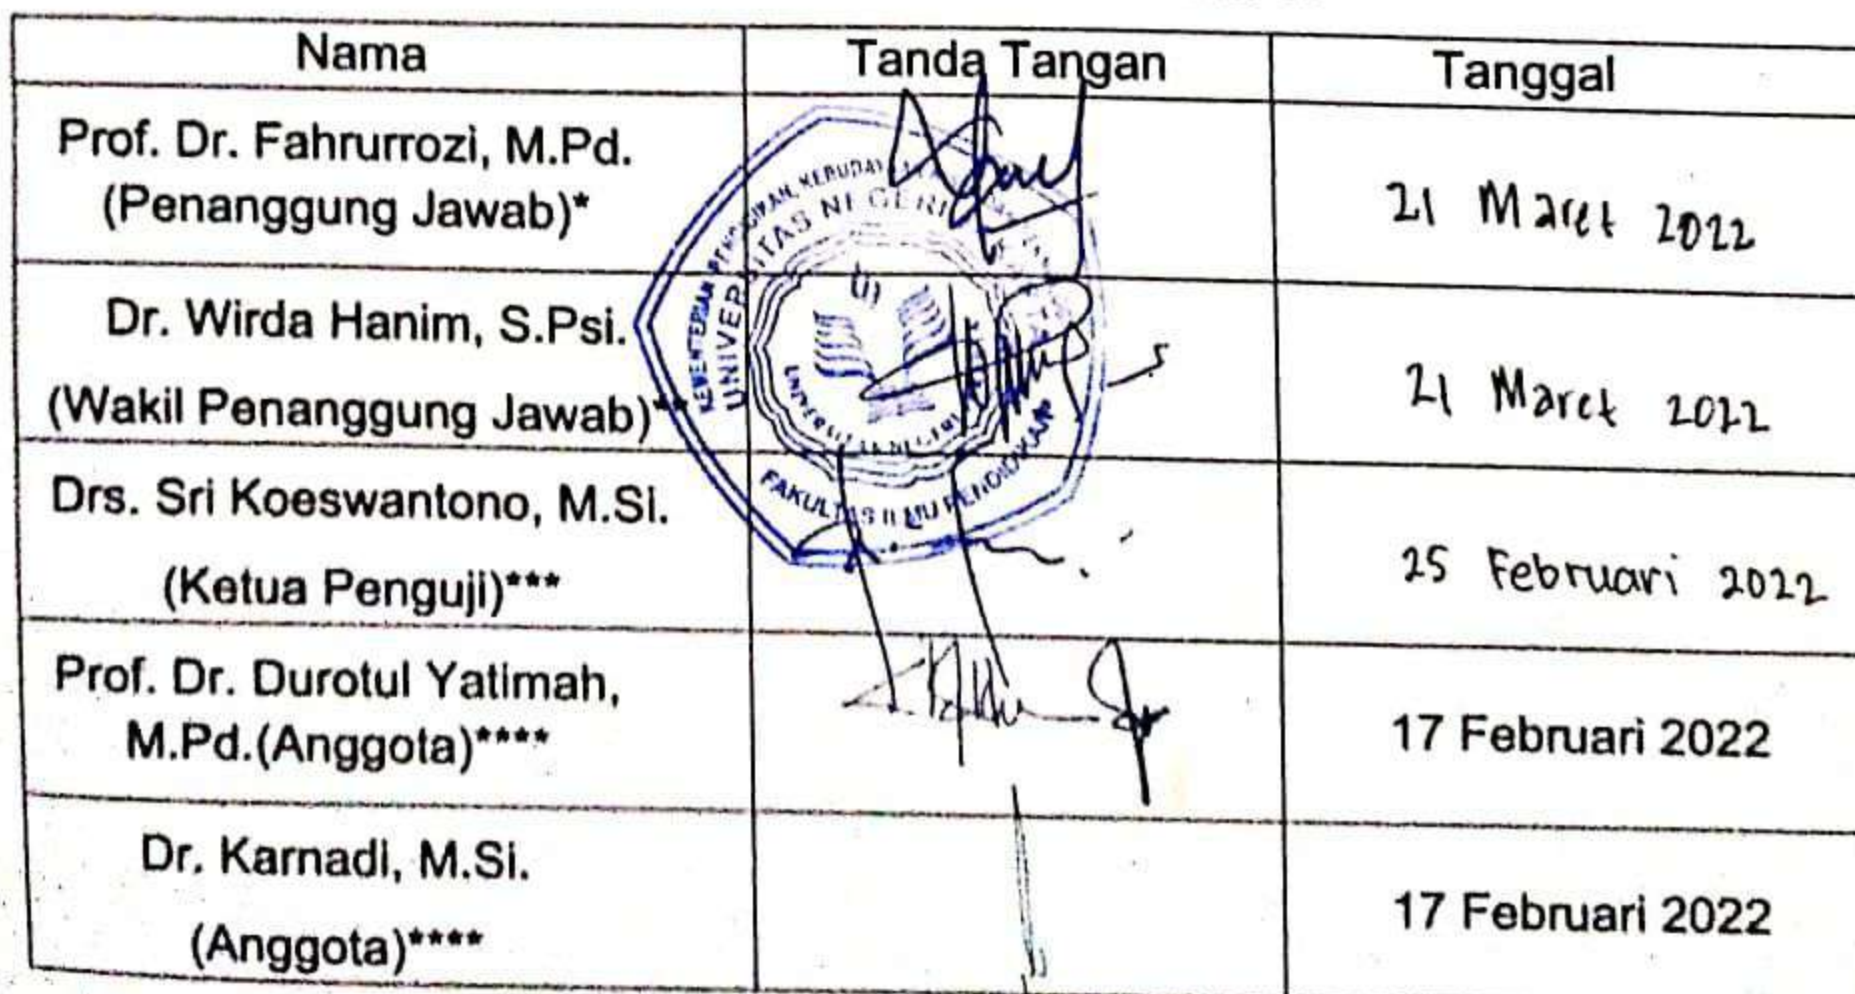 Nama Tanda Tangan Tanggal
Prof. Dr. Fahrurrozi, M.Pd.
(Penanggung Jawab)*
21 Maret 2022
Dr. Wirda Hanim, S.Psi.
(Wakil Penanggung Jawab)**
21 Maret 2022
Drs. Sri Koeswantono, M.Si.
(Ketua Penguji)***
25 Februari 2022
Prof. Dr. Durotul Yatimah,
M.Pd.(Anggota)****
17 Februari 2022
Dr. Karnadi, M.Si.
(Anggota)****
17 Februari 2022
UNIVERSITAS NEGERI
FAKULTAS ILMU PENDIDIKAN